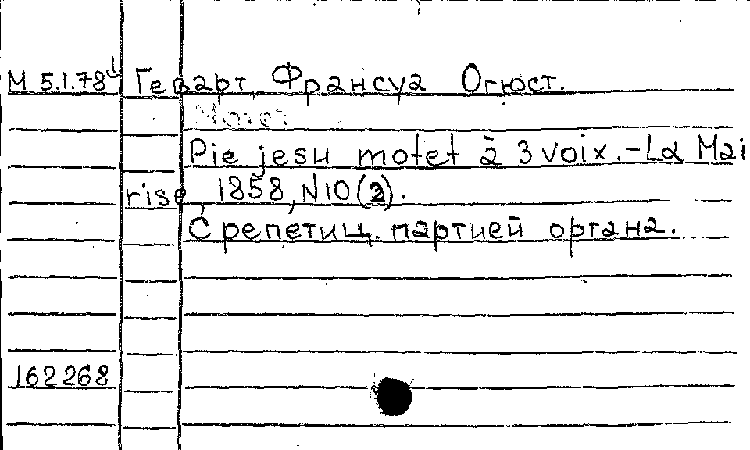 М 5.1.78 Геварт, Франсуа Огюст.
Мотет
Pie jesu motet à 3 voix.-La Mai
rise, 1858, N10(2).
С репетиц. партией органа.
162268